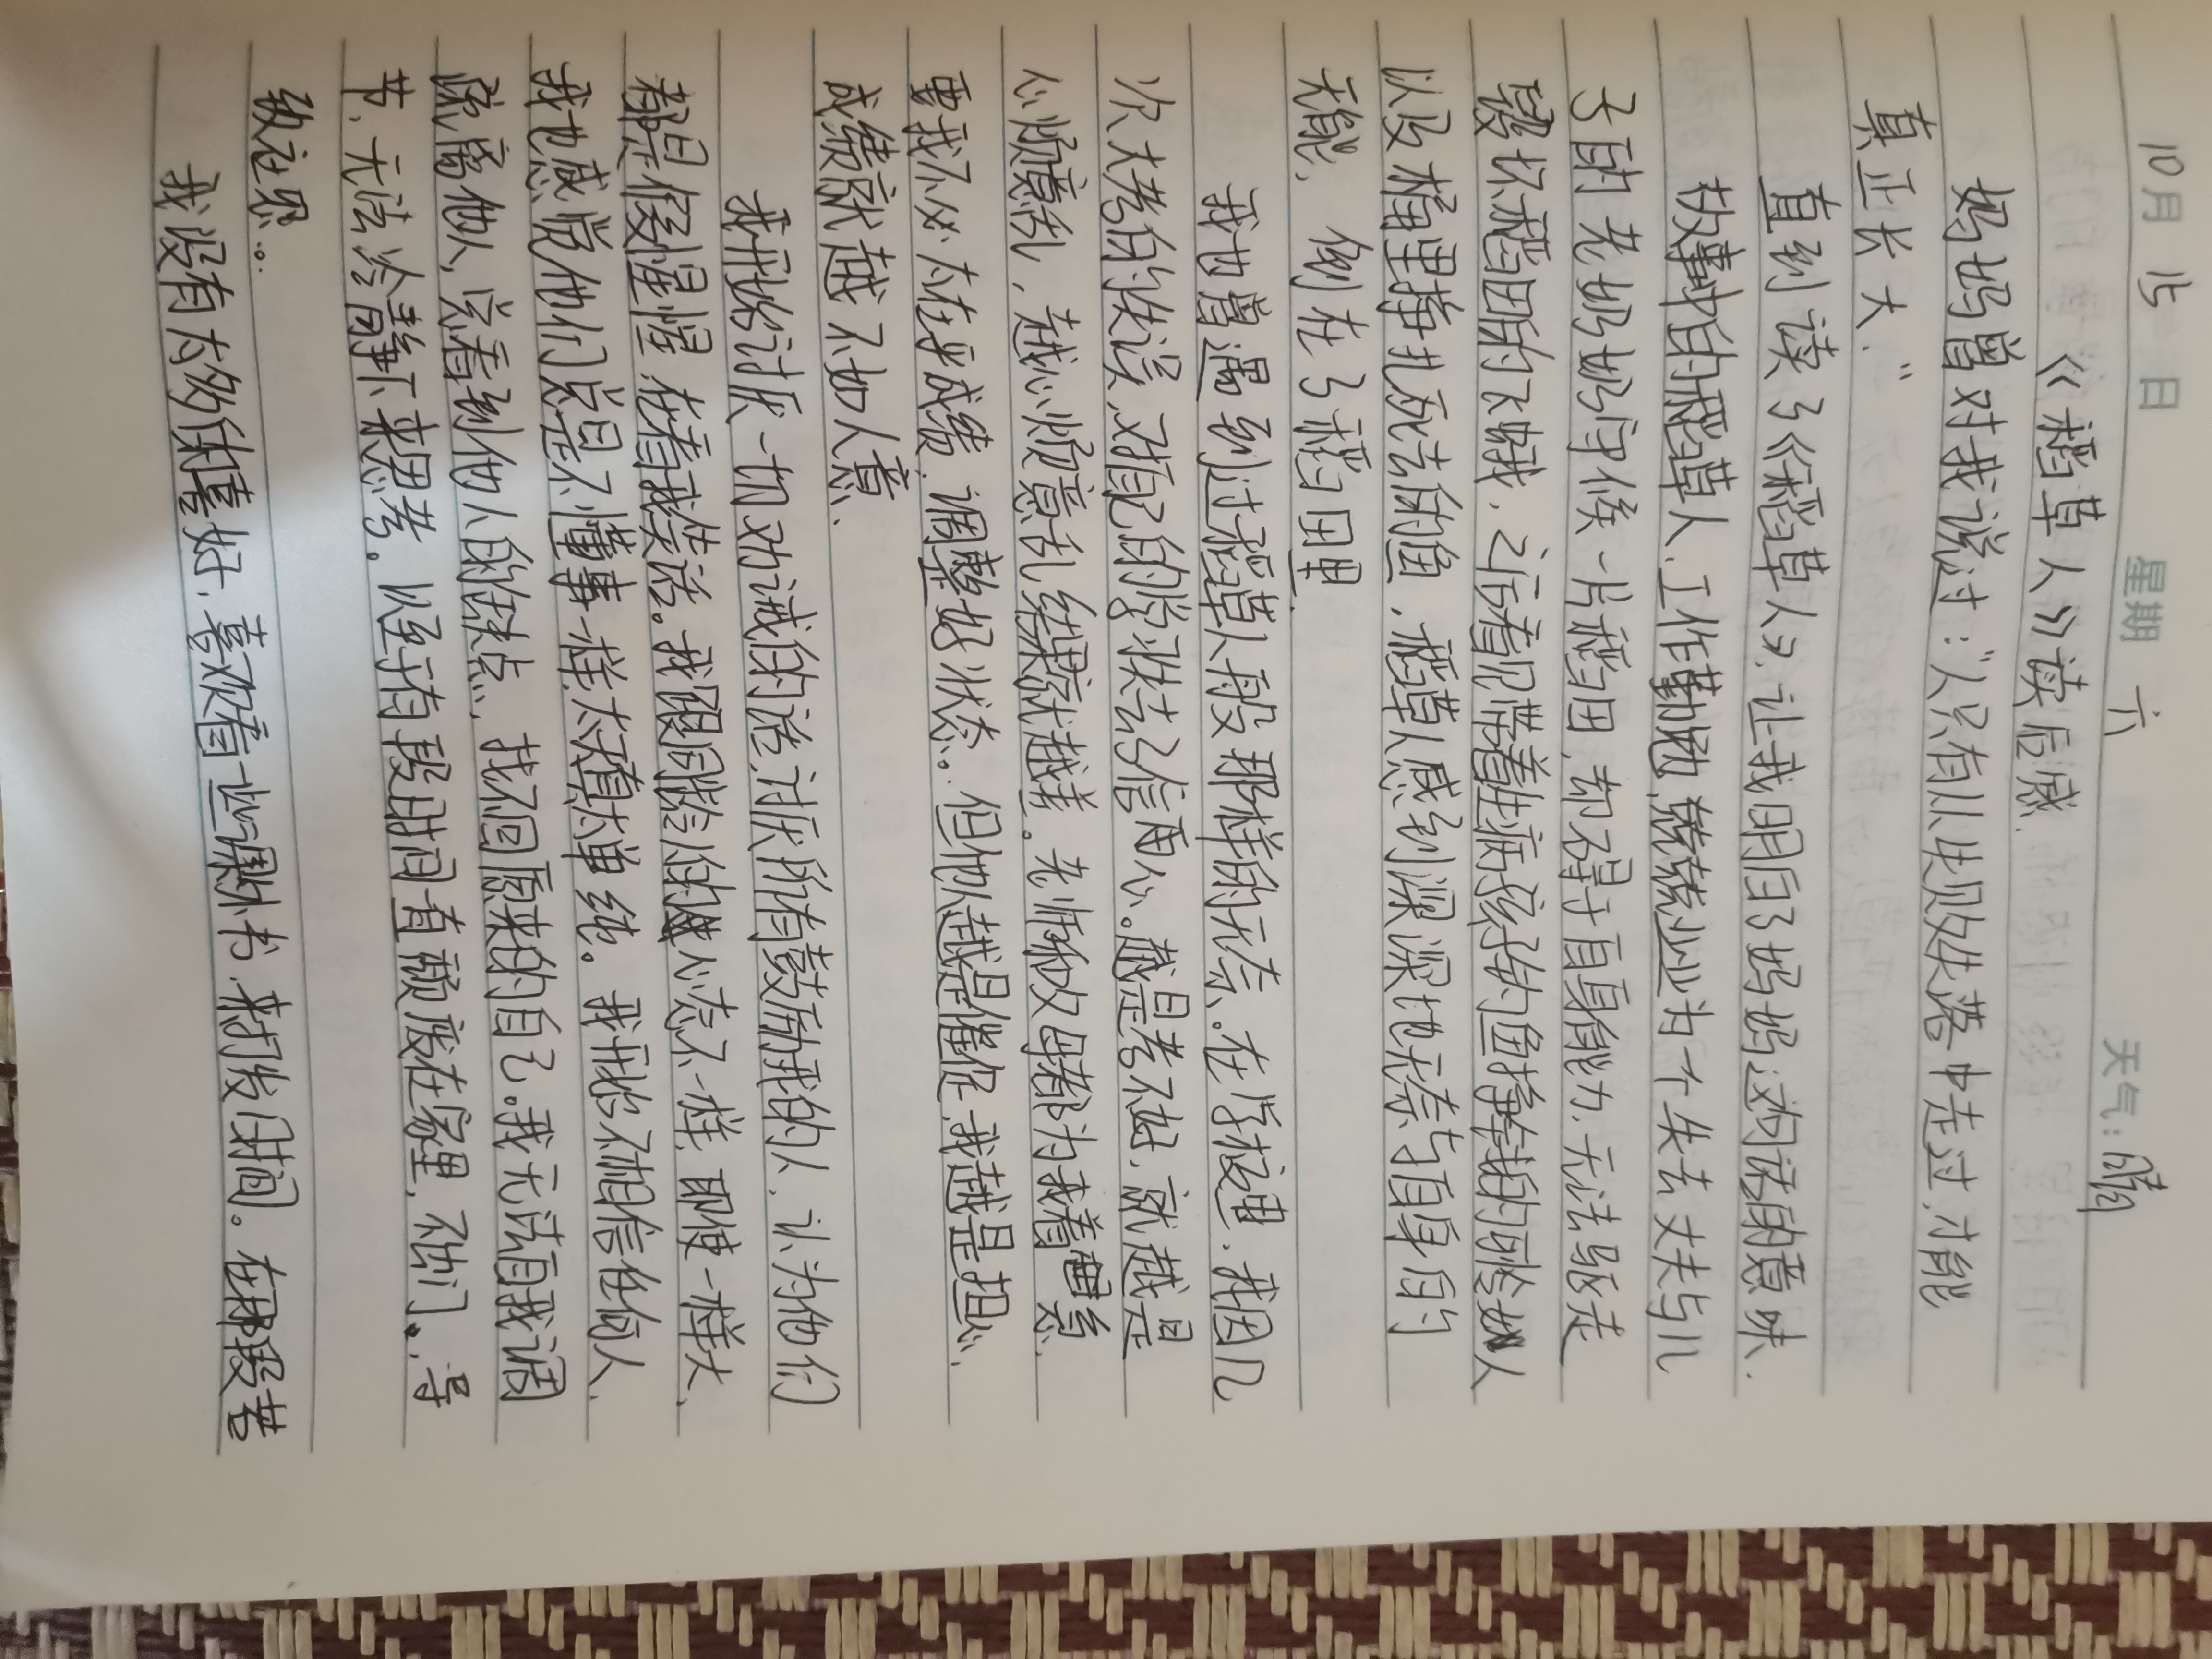 10月 15日 星期 六 天气：晴
《稻草人》读后感.
妈妈曾对我说过："人只有从失败失落中走过,才能
真正长大."
直到读了《稻草人》,让我明白了妈妈这句话的意味.
故事中的稻草人,工作勤勉,兢兢业业为一个失去丈夫与儿
子的老奶奶守候一片稻田,却不得于自身能力,无法驱走
毁坏稻田的飞蛾,之后看见带着生病孩子钓鱼挣钱的可怜妇人
以及桶里挣扎死去的鱼,稻草人感到深深地无奈与自身的
无能,倒在了稻田里.
我也曾遇到过稻草人般那样的无奈。在学校里,我因几
次大考的失误,对自己的学业失去了信心。越是考不好,就越是
心烦意乱,越心烦意乱结果就越差。老师父母都为我着急.
要我不必太在乎成绩,调整好状态。但他人越是催促,我越是担心.
成绩就越不如人意.
我开始讨厌一切劝诫的话,讨厌所有鼓励我的人,认为他们
都是假惺惺在看我笑话。我跟同龄人的心态不一样,即使一样大,
我也感觉他们总是不懂事一样太天真太单纯。我开始不相信任何人,
疏离他人,只看到他人的缺点,找不回原来的自己。我无法自我调
节,无法冷静下来思考。以至于有段时间一直颓废在家里,不出门。导
致社恐。
我没有太多的喜好,喜欢看一些课外书,来打发时间。在那段苦